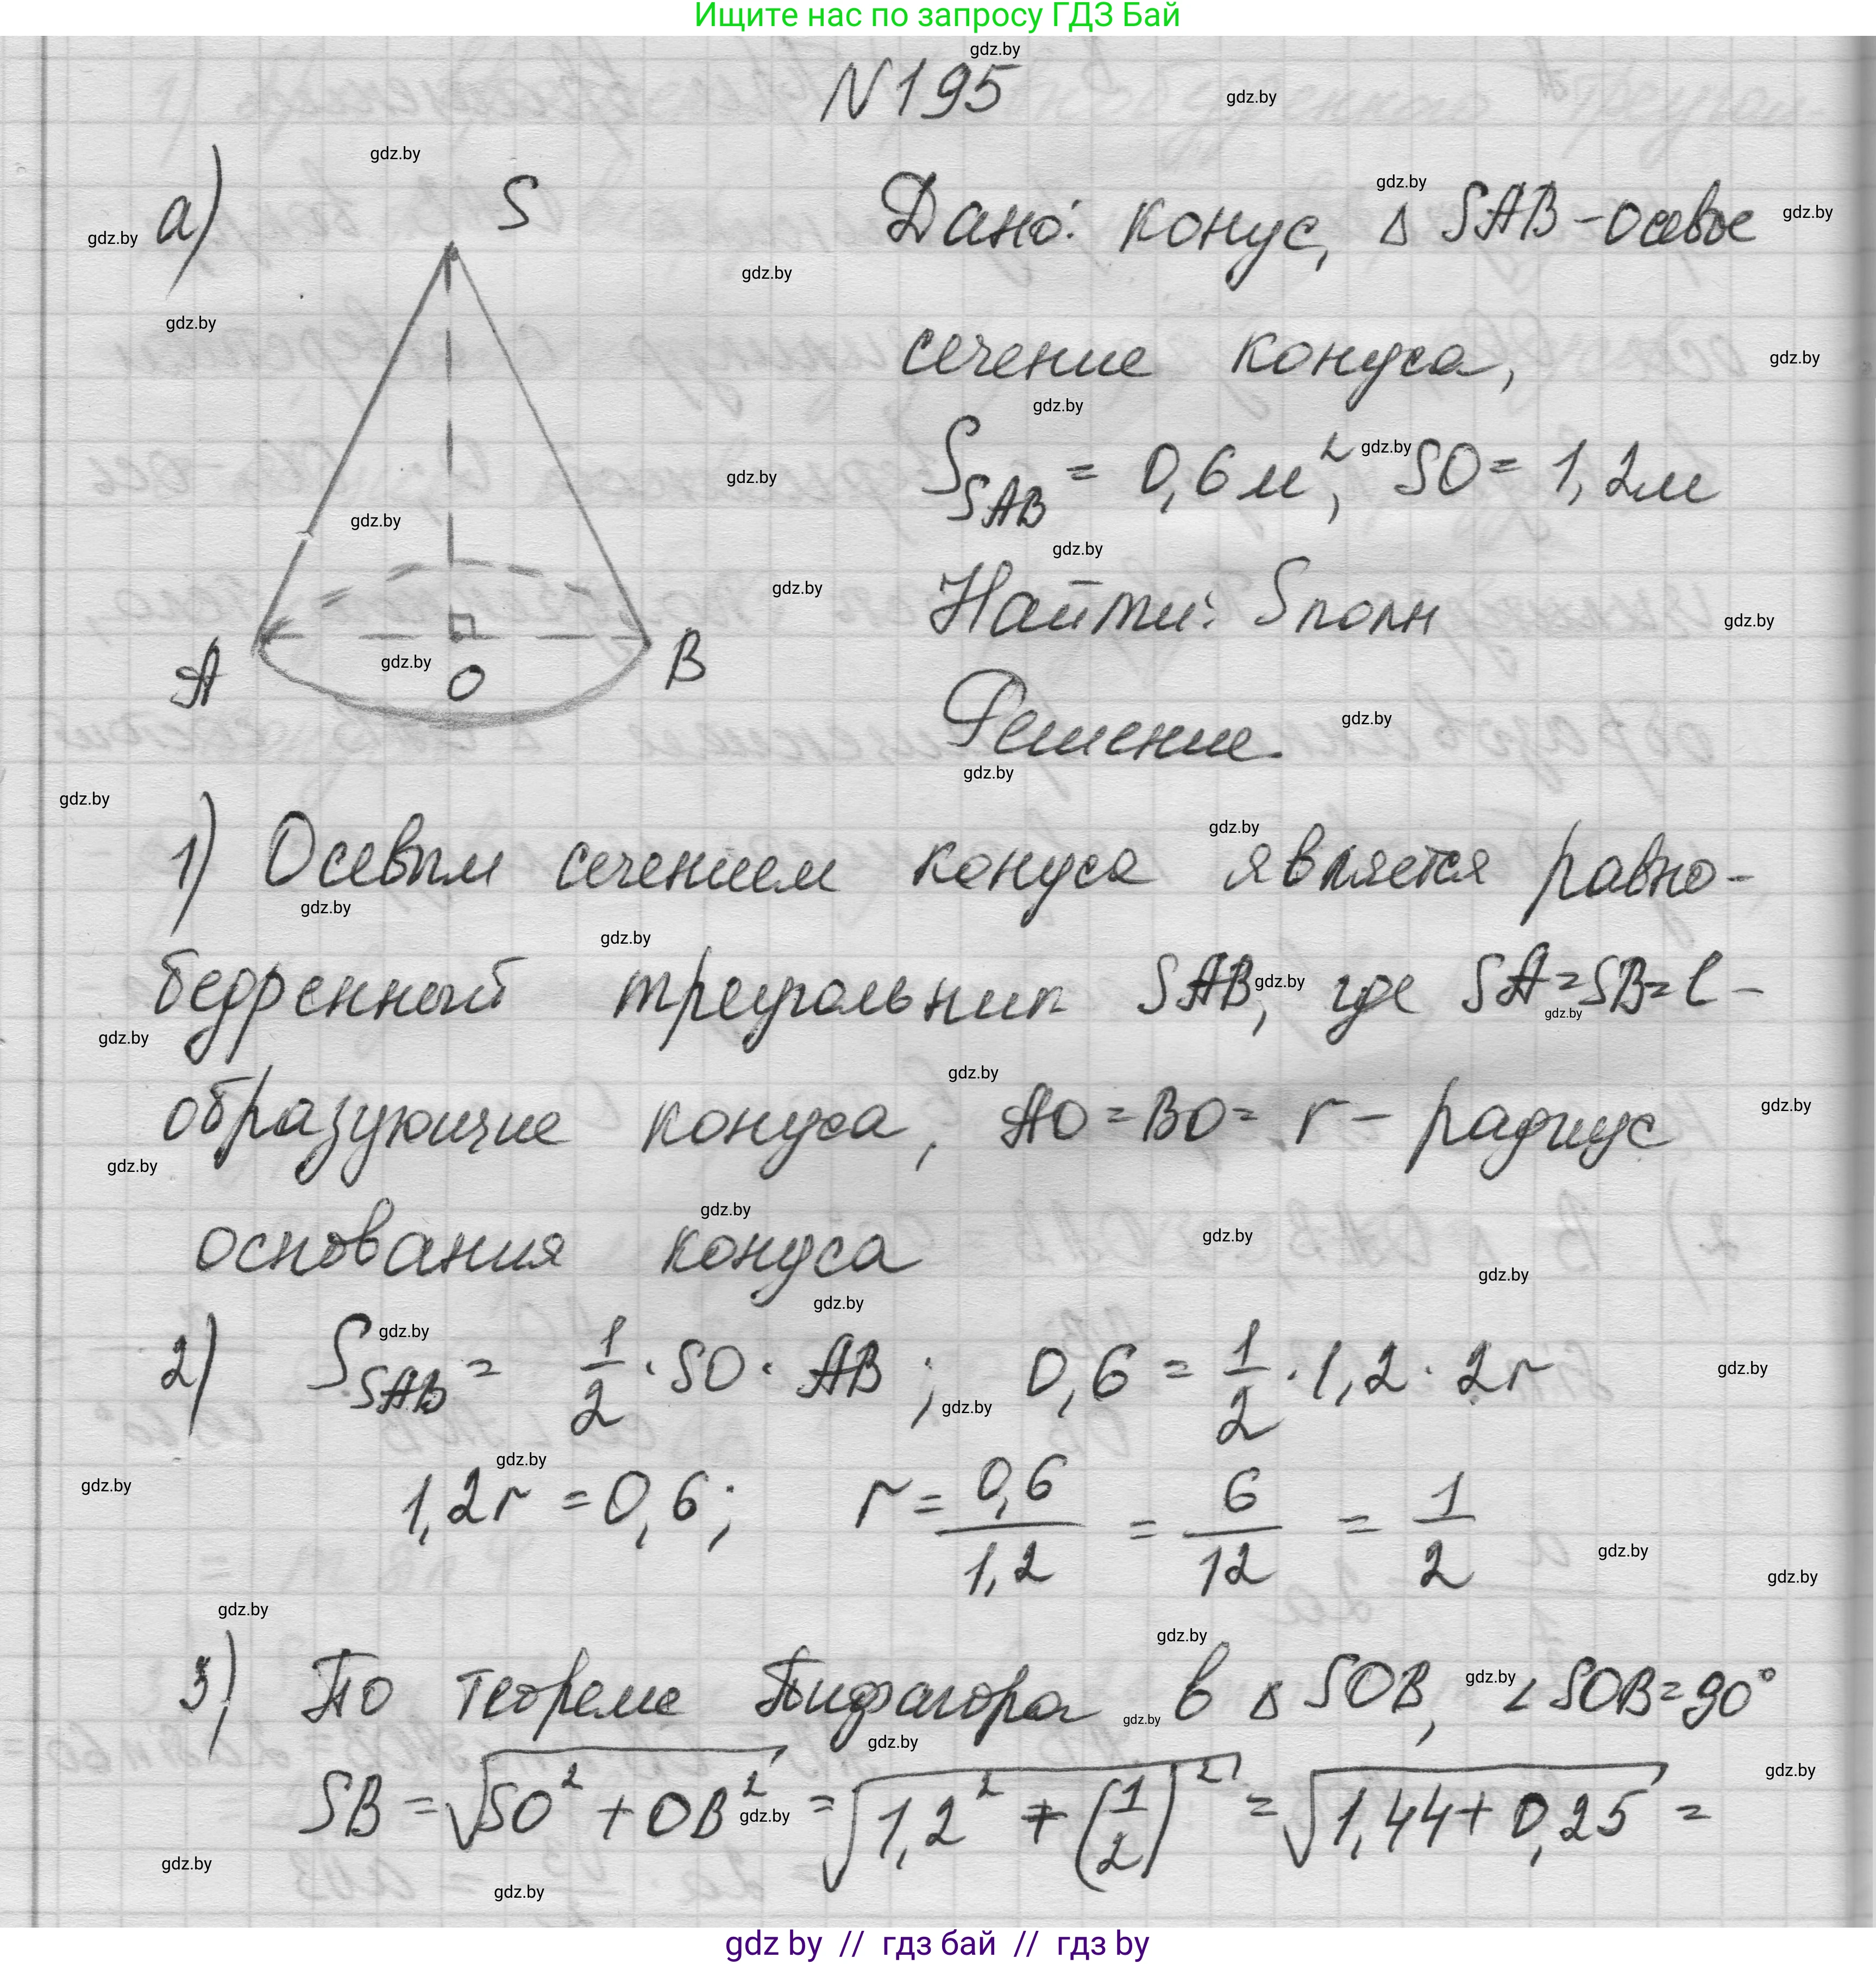 Ищите нас по запросу ГДЗ Бай
gdz.by
N195
а)
S
A
O
B
Дано: конус, Δ SAB - осевое
сечение конуса,
S_SAB = 0,6 м², SO = 1,2 м
Найти: Sполн
Решение.
1) Осевым сечением конуса является равно-
бедренный треугольник SAB, где SA=SB=l -
образующие конуса, AO=BO= r - радиус
основания конуса
2) S_SAB = 1/2 · SO · AB ; 0,6 = 1/2 · 1,2 · 2r
1,2r = 0,6; r = 0,6/1,2 = 6/12 = 1/2
3) По теореме Пифагора в Δ SOB, ∠SOB=90°
SB = √(SO² + OB²) = √(1,2² + (1/2)²) = √(1,44 + 0,25) =
gdz by // гдз бай // гдз by